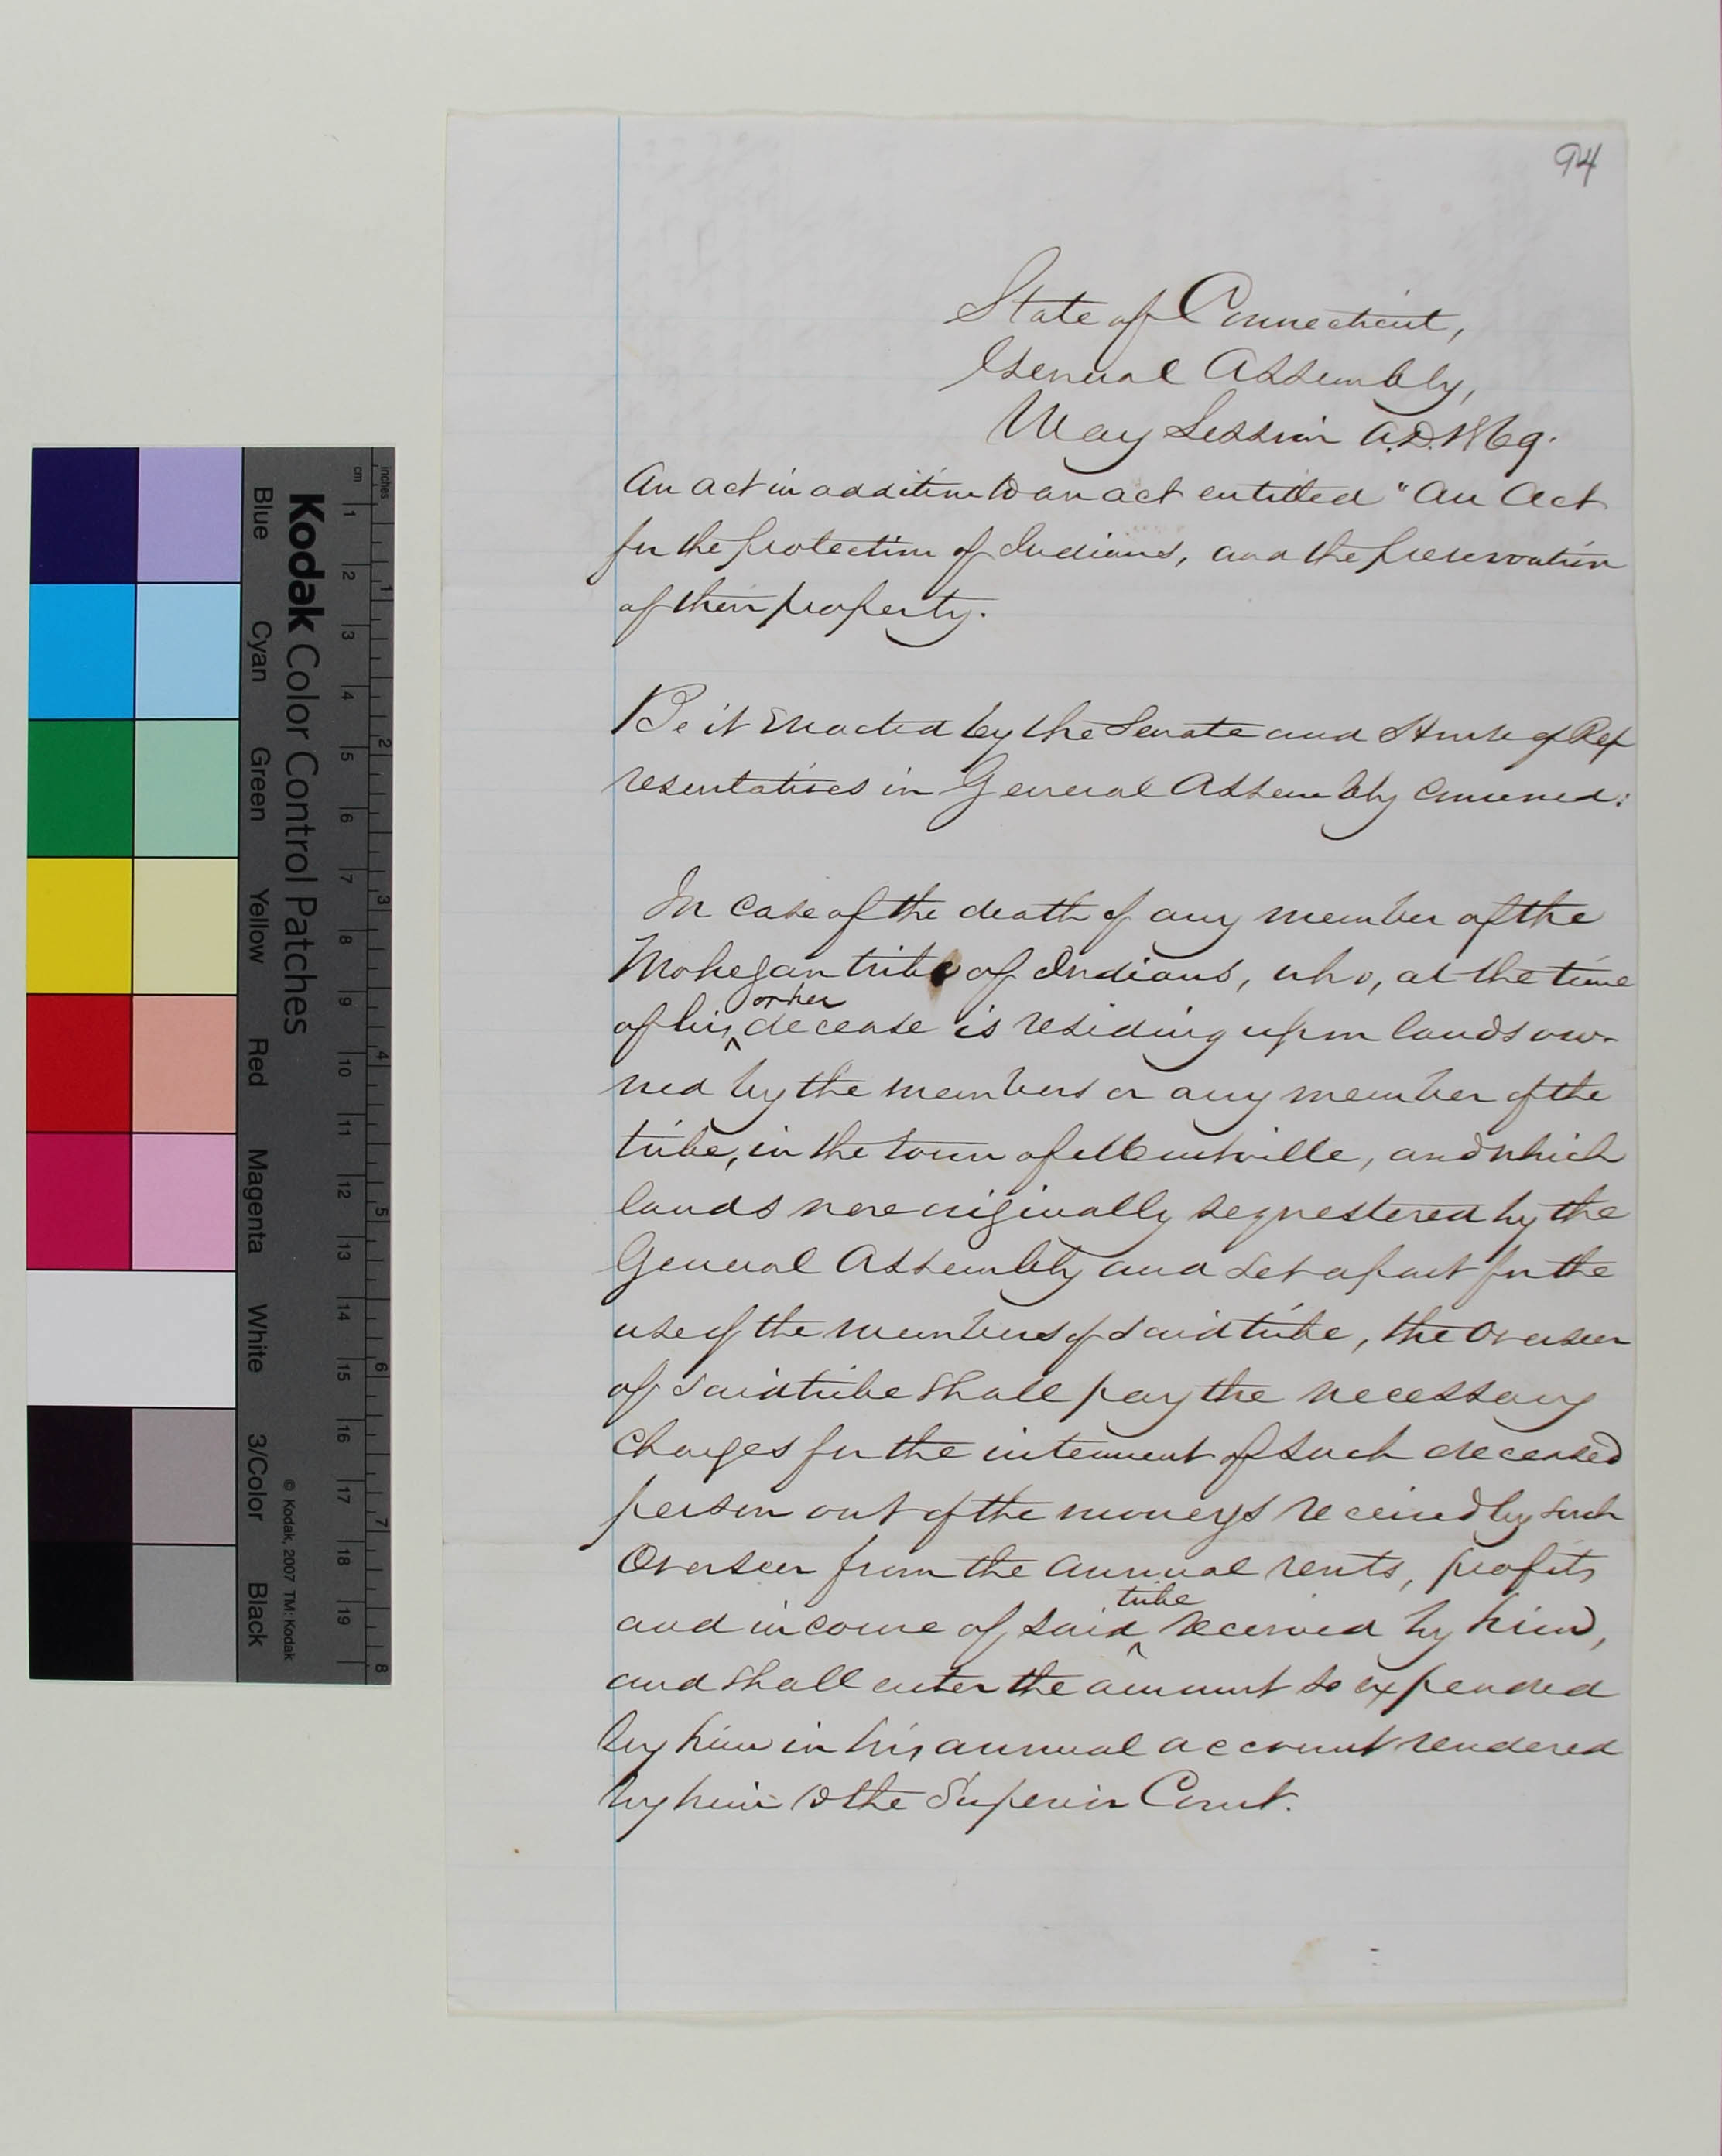 94
State of Connecticut,
General Assembly,
May Session A.D. 1869.
An act in addition to an act entitled "An Act
for the protection of Indians, and the preservation
of their property.
Be it Enacted by the Senate and House of Rep
resentatives in General Assembly convened:
In case of the death of any member of the
Mohegan tribe of Indians, who, at the time
of his ^ or her decease is residing upon lands ow-
ned by the members or any member of the
tribe, in the town of Montville, and which
lands were originally sequestered by the
General Assembly and set apart for the
use of the members of said tribe, the Overseer
of said tribe shall pay the necessary
charges for the interment of such deceased
person out of the moneys received by such
Overseer from the annual rents, profits
and income of said ^ tribe received by him,
and shall enter the amount so expended
by him in his annual account rendered
by him to the Superior Court.
Kodak Color Control Patches
Blue Cyan Green Yellow Red Magenta White 3/Color Black
© Kodak, 2007 TM: Kodak
inches 1 2 3 4 5 6 7 8
cm 1 2 3 4 5 6 7 8 9 10 11 12 13 14 15 16 17 18 19